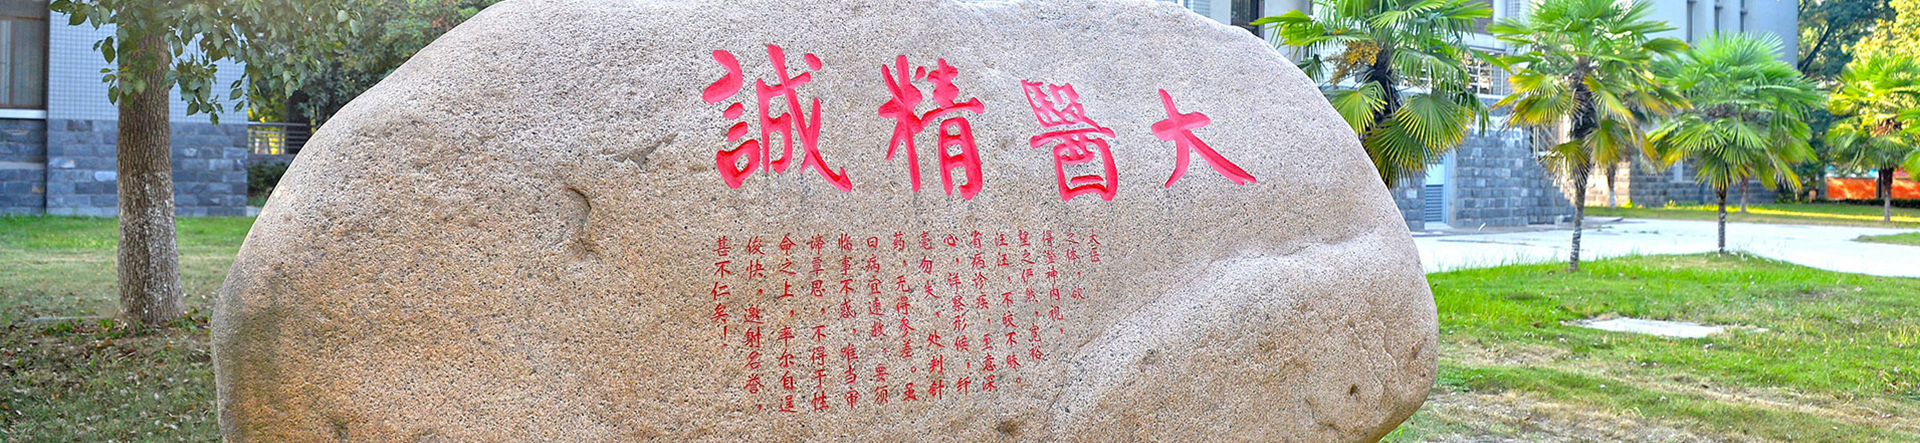 大醫精誠
大医
之体，欲
得澄神内视，
望之俨然，宽裕
汪汪，不皎不昧。
省病诊疾，至意深
心，详察形候，纤
毫勿失。处判针
药，无得参差。虽
曰病宜速救，要须
临事不惑，唯当审
谛覃思，不得于性
命之上，率尔自逞
俊快，邀射名誉，
甚不仁矣！